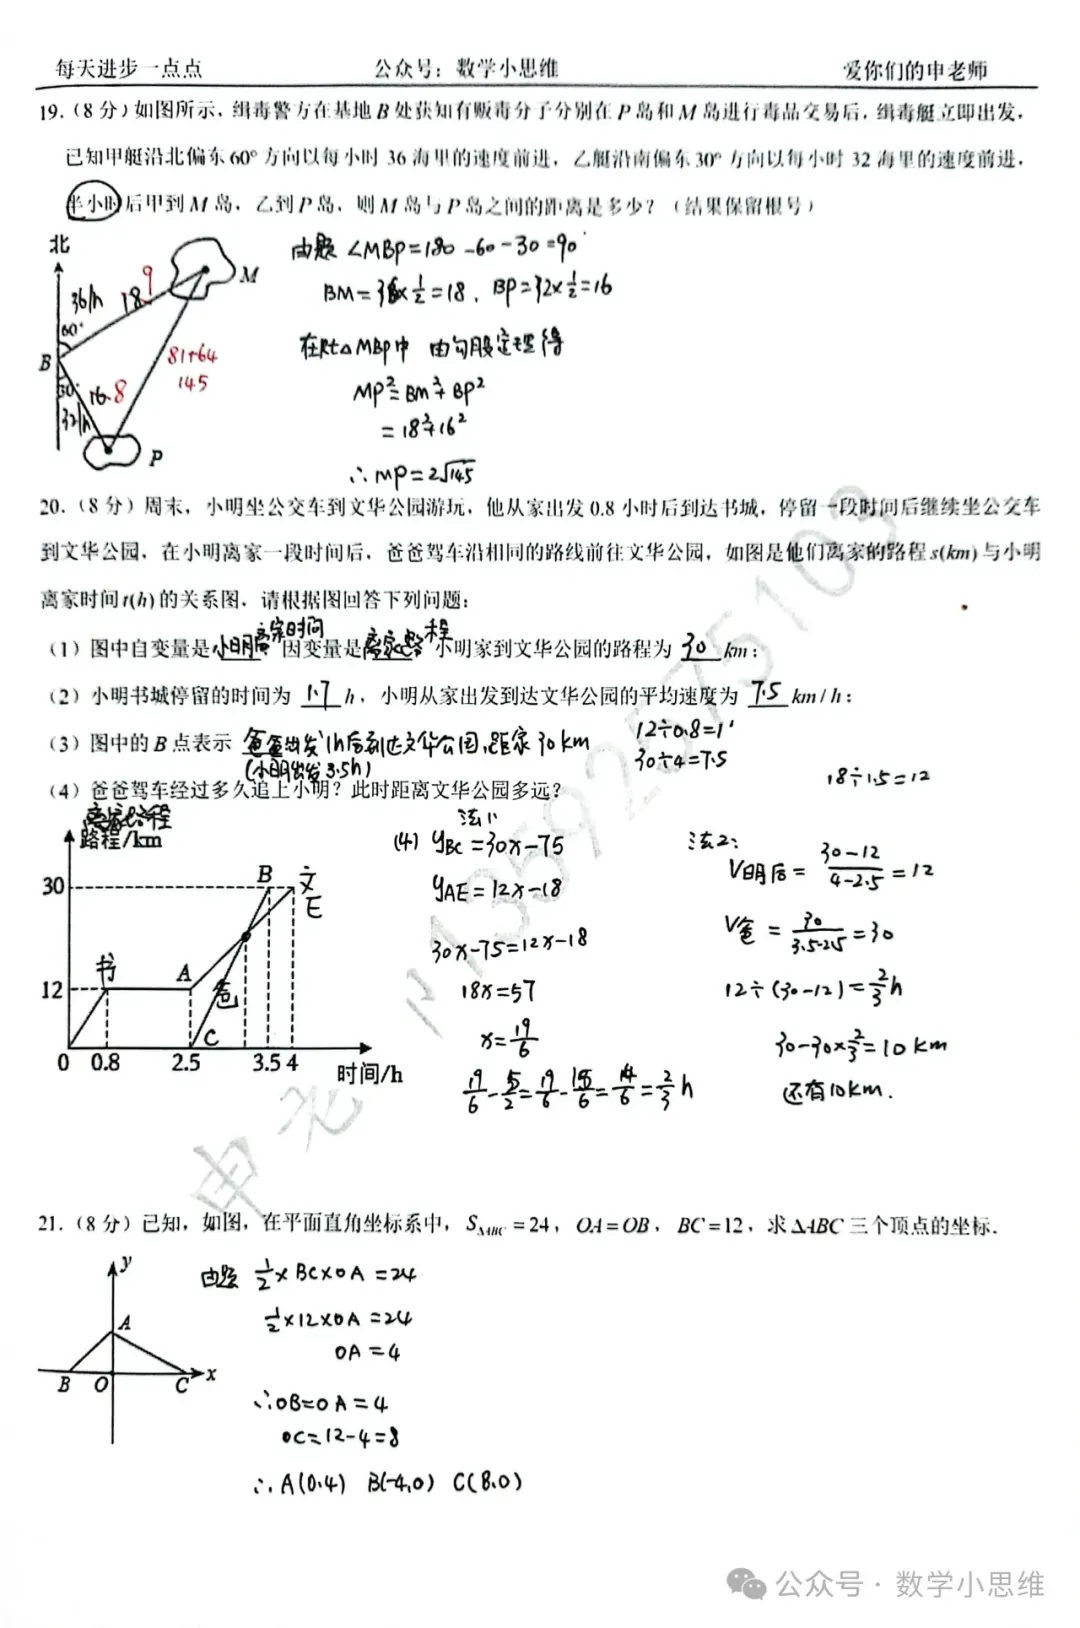 每天进步一点点 公众号：数学小思维 爱你们的申老师
19.（8分）如图所示，缉毒警方在基地B处获知有贩毒分子分别在P岛和M岛进行毒品交易后，缉毒艇立即出发，
已知甲艇沿北偏东60°方向以每小时36海里的速度前进，乙艇沿南偏东30°方向以每小时32海里的速度前进，
半小时后甲到M岛，乙到P岛，则M岛与P岛之间的距离是多少？（结果保留根号）
北
M
36/h
18
9
60°
B
30°
16
8
32/h
81+64
145
P
由题 ∠MBP=180-60-30=90°
BM=36×1/2=18，BP=32×1/2=16
在Rt△MBP中 由勾股定理得
MP²=BM²+BP²
=18²+16²
∴MP=2√145
20.（8分）周末，小明坐公交车到文华公园游玩，他从家出发0.8小时后到达书城，停留一段时间后继续坐公交车
到文华公园，在小明离家一段时间后，爸爸驾车沿相同的路线前往文华公园，如图是他们离家的路程s(km)与小明
离家时间t(h)的关系图，请根据图回答下列问题：
（1）图中自变量是小明离家时间 因变量是离家路程 小明家到文华公园的路程为 30 km；
（2）小明书城停留的时间为 1.7 h，小明从家出发到达文华公园的平均速度为 7.5 km/h；
（3）图中的B点表示 爸爸出发1h后到达文华公园，距家30km
(小明出发3.5h)
12÷0.8=1
30÷4=7.5
18÷1.5=12
（4）爸爸驾车经过多久追上小明？此时距离文华公园多远？
离家路程
路程/km
30
12
书
A
B
文
E
爸
C
0 0.8 2.5 3.5 4
时间/h
法1：
(4) yBC=30x-75
yAE=12x-18
30x-75=12x-18
18x=57
x=19/6
19/6-5/2=19/6-15/6=4/6=2/3 h
法2：
V明后=(30-12)/(4-2.5)=12
V爸=30/(3.5-2.5)=30
12÷(30-12)=2/3 h
30-30×2/3=10km
还有10km.
申老师13592575103
21.（8分）已知，如图，在平面直角坐标系中，S△ABC=24，OA=OB，BC=12，求△ABC三个顶点的坐标.
y
A
B O C x
由题 1/2×BC×OA=24
1/2×12×OA=24
OA=4
∴OB=OA=4
OC=12-4=8
∴A(0,4) B(-4,0) C(8,0)
公众号·数学小思维